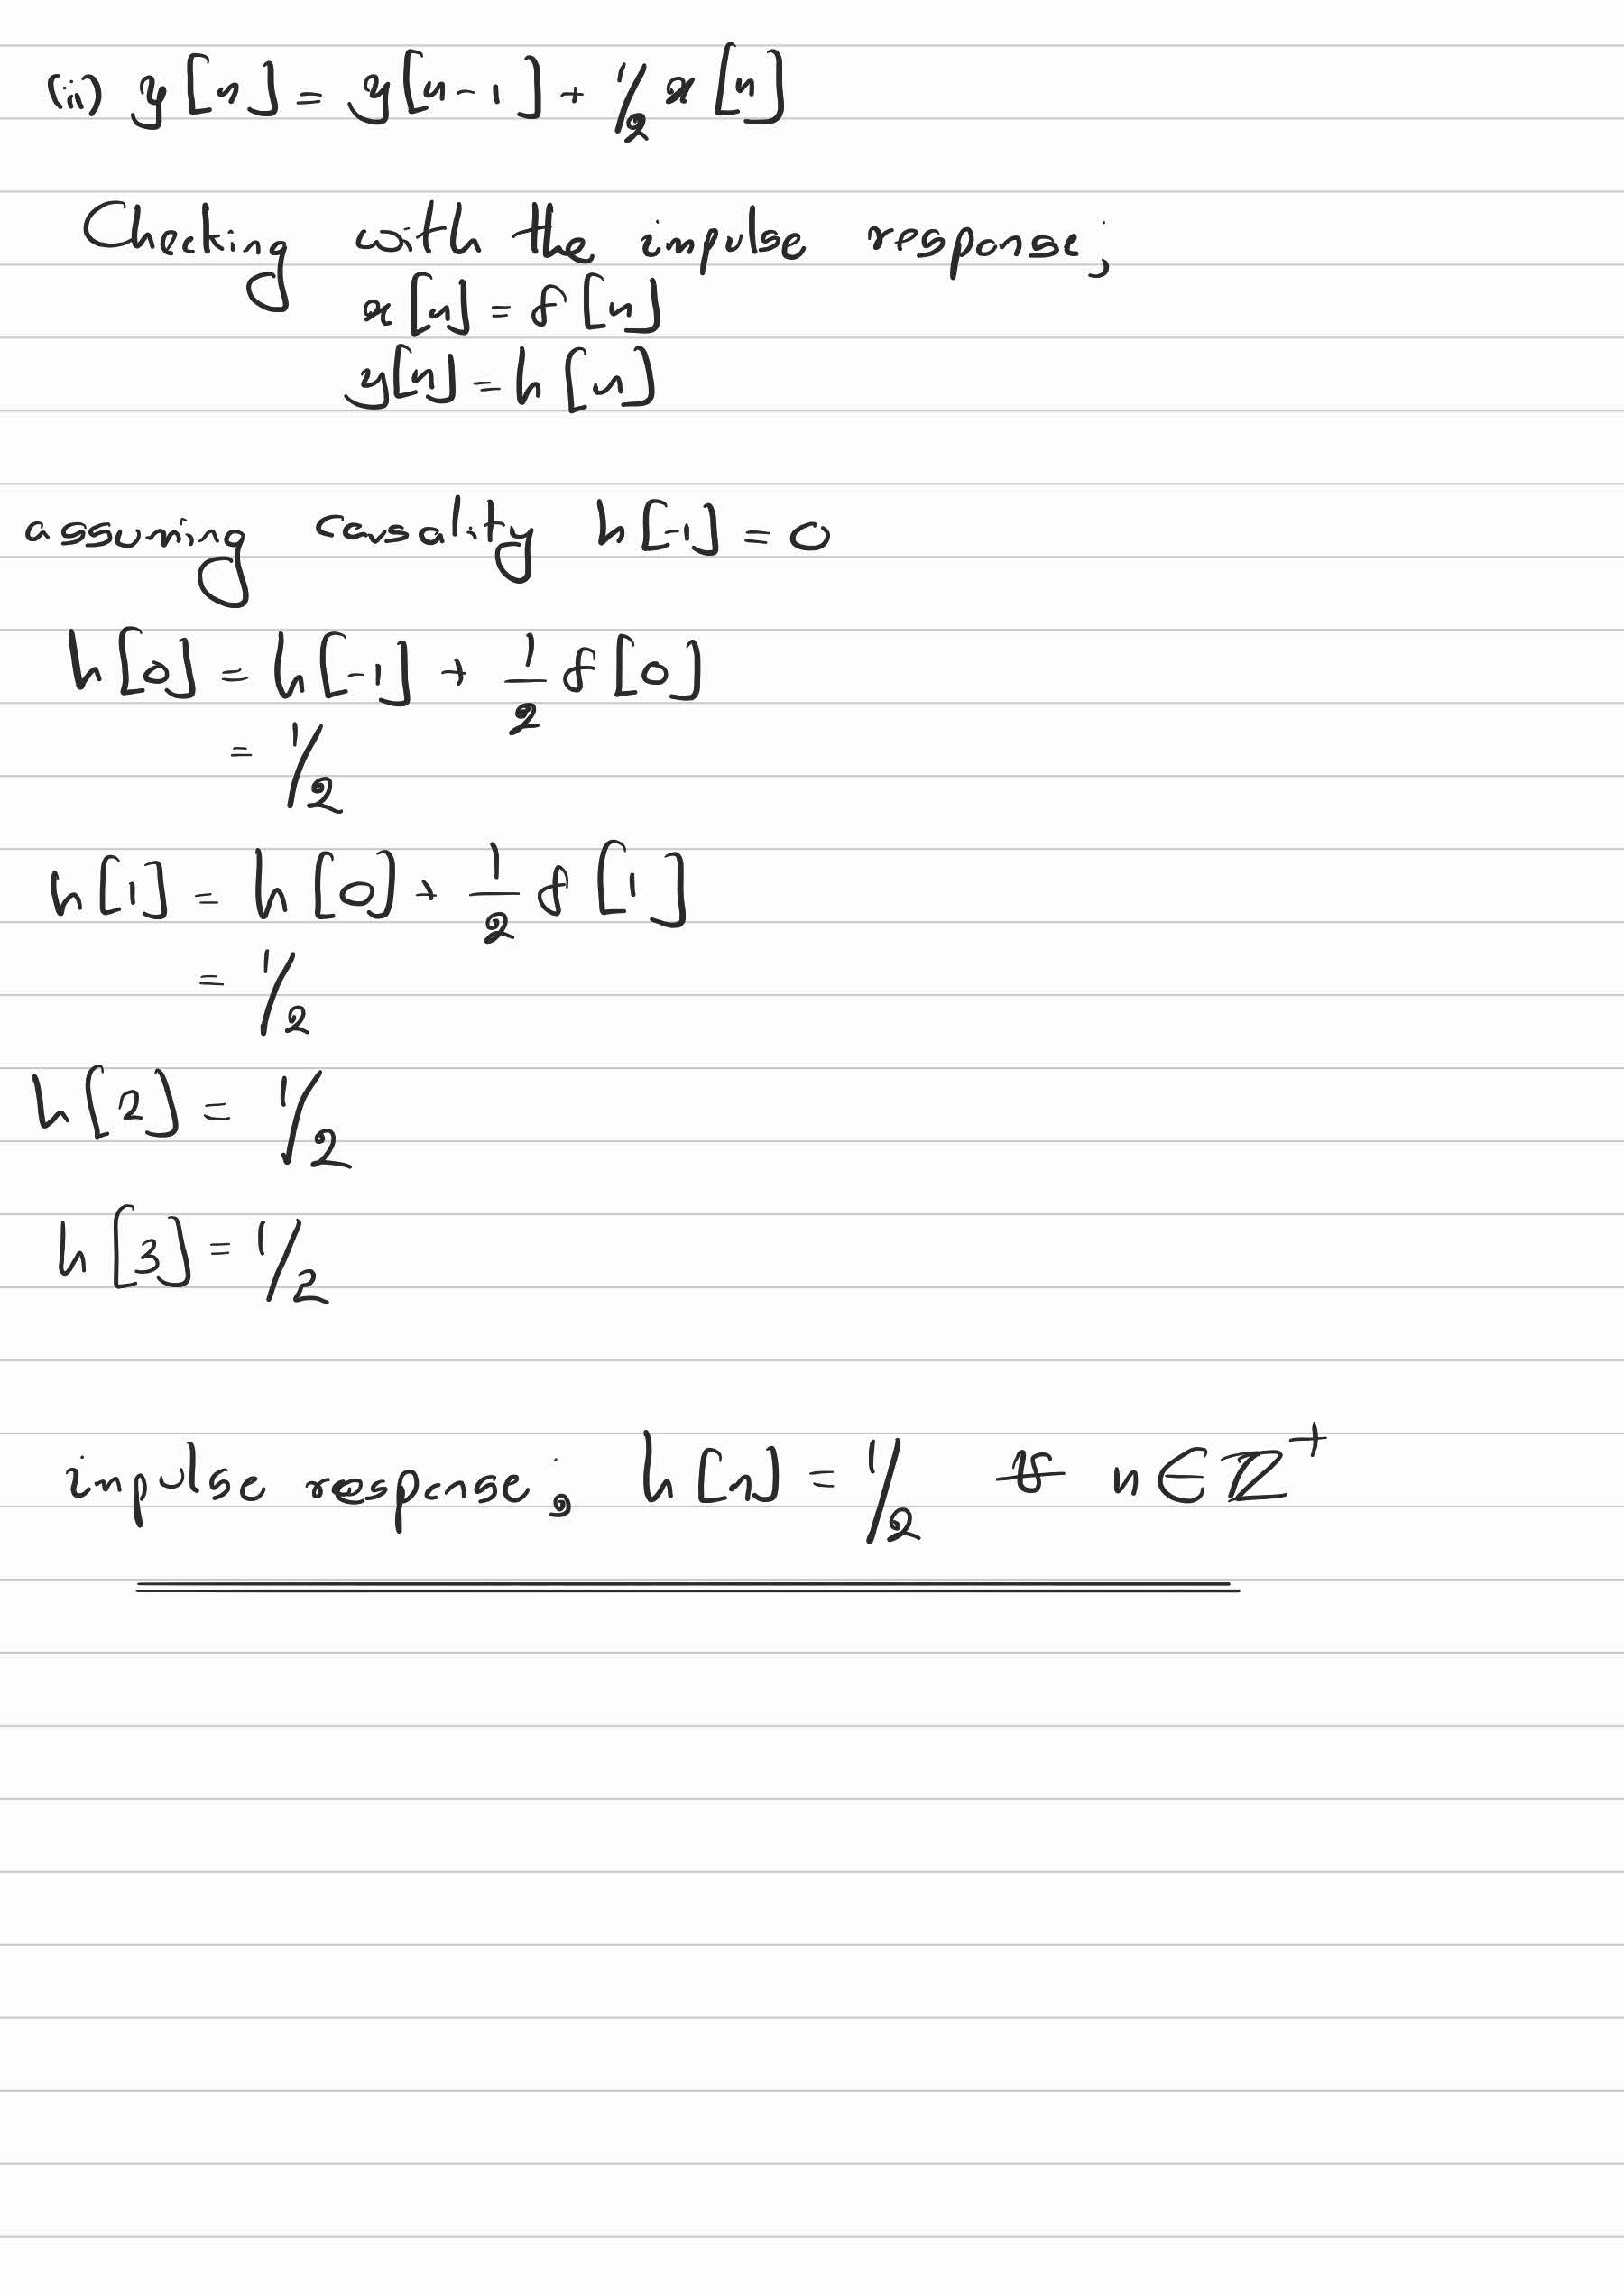 (ii) y[n] = y[n-1] + 1/2 x[n]
Cheking with the impulse response;
x[n] = δ[n]
y[n] = h[n]
assuming causality h[-1] = 0
h[0] = h[-1] + 1/2 δ[0]
= 1/2
h[1] = h[0] + 1/2 δ[1]
= 1/2
h[2] = 1/2
h[3] = 1/2
impulse response; h[n] = 1/2 n∈Z⁺